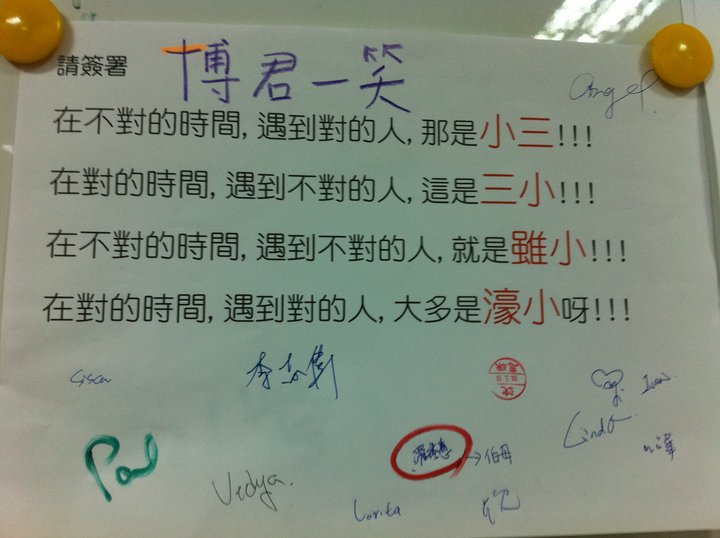 請簽署
博君一笑
Angel
在不對的時間, 遇到對的人, 那是小三!!!
在對的時間, 遇到不對的人, 這是三小!!!
在不對的時間, 遇到不對的人, 就是雖小!!!
在對的時間, 遇到對的人, 大多是濠小呀!!!
Paul
Vidya.
Lorita
Linda
→伯母